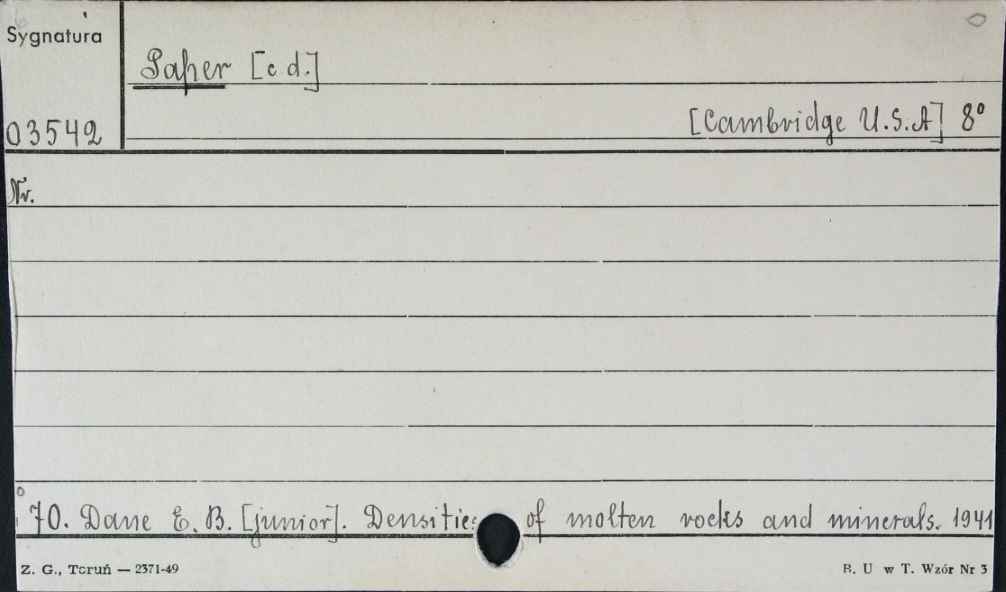 Sygnatura
Paper [c d.]
[Cambridge U.S.A] 8°
03542
Nr.
70. Dane E. B. [junior]. Densities of molten rocks and minerals. 1941
Z. G., Toruń — 2371-49
B. U w T. Wzór Nr 3